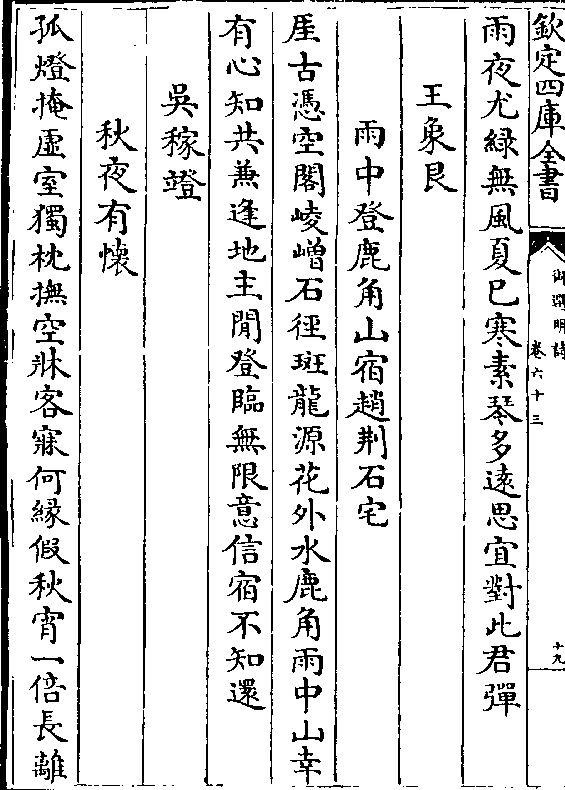 欽定四庫全書
御選明詩
卷六十三
十九
雨夜尤緑無風夏巳寒素琴多遠思宜對此君彈
王象艮
雨中登鹿角山宿趙荆石宅
厓古憑空閣崚嶒石徑斑龍源花外水鹿角雨中山幸
有心知共兼逢地主閒登臨無限意信宿不知還
吳稼竳
秋夜有懷
孤燈掩虚室獨枕撫空牀客寐何緣假秋宵一倍長離